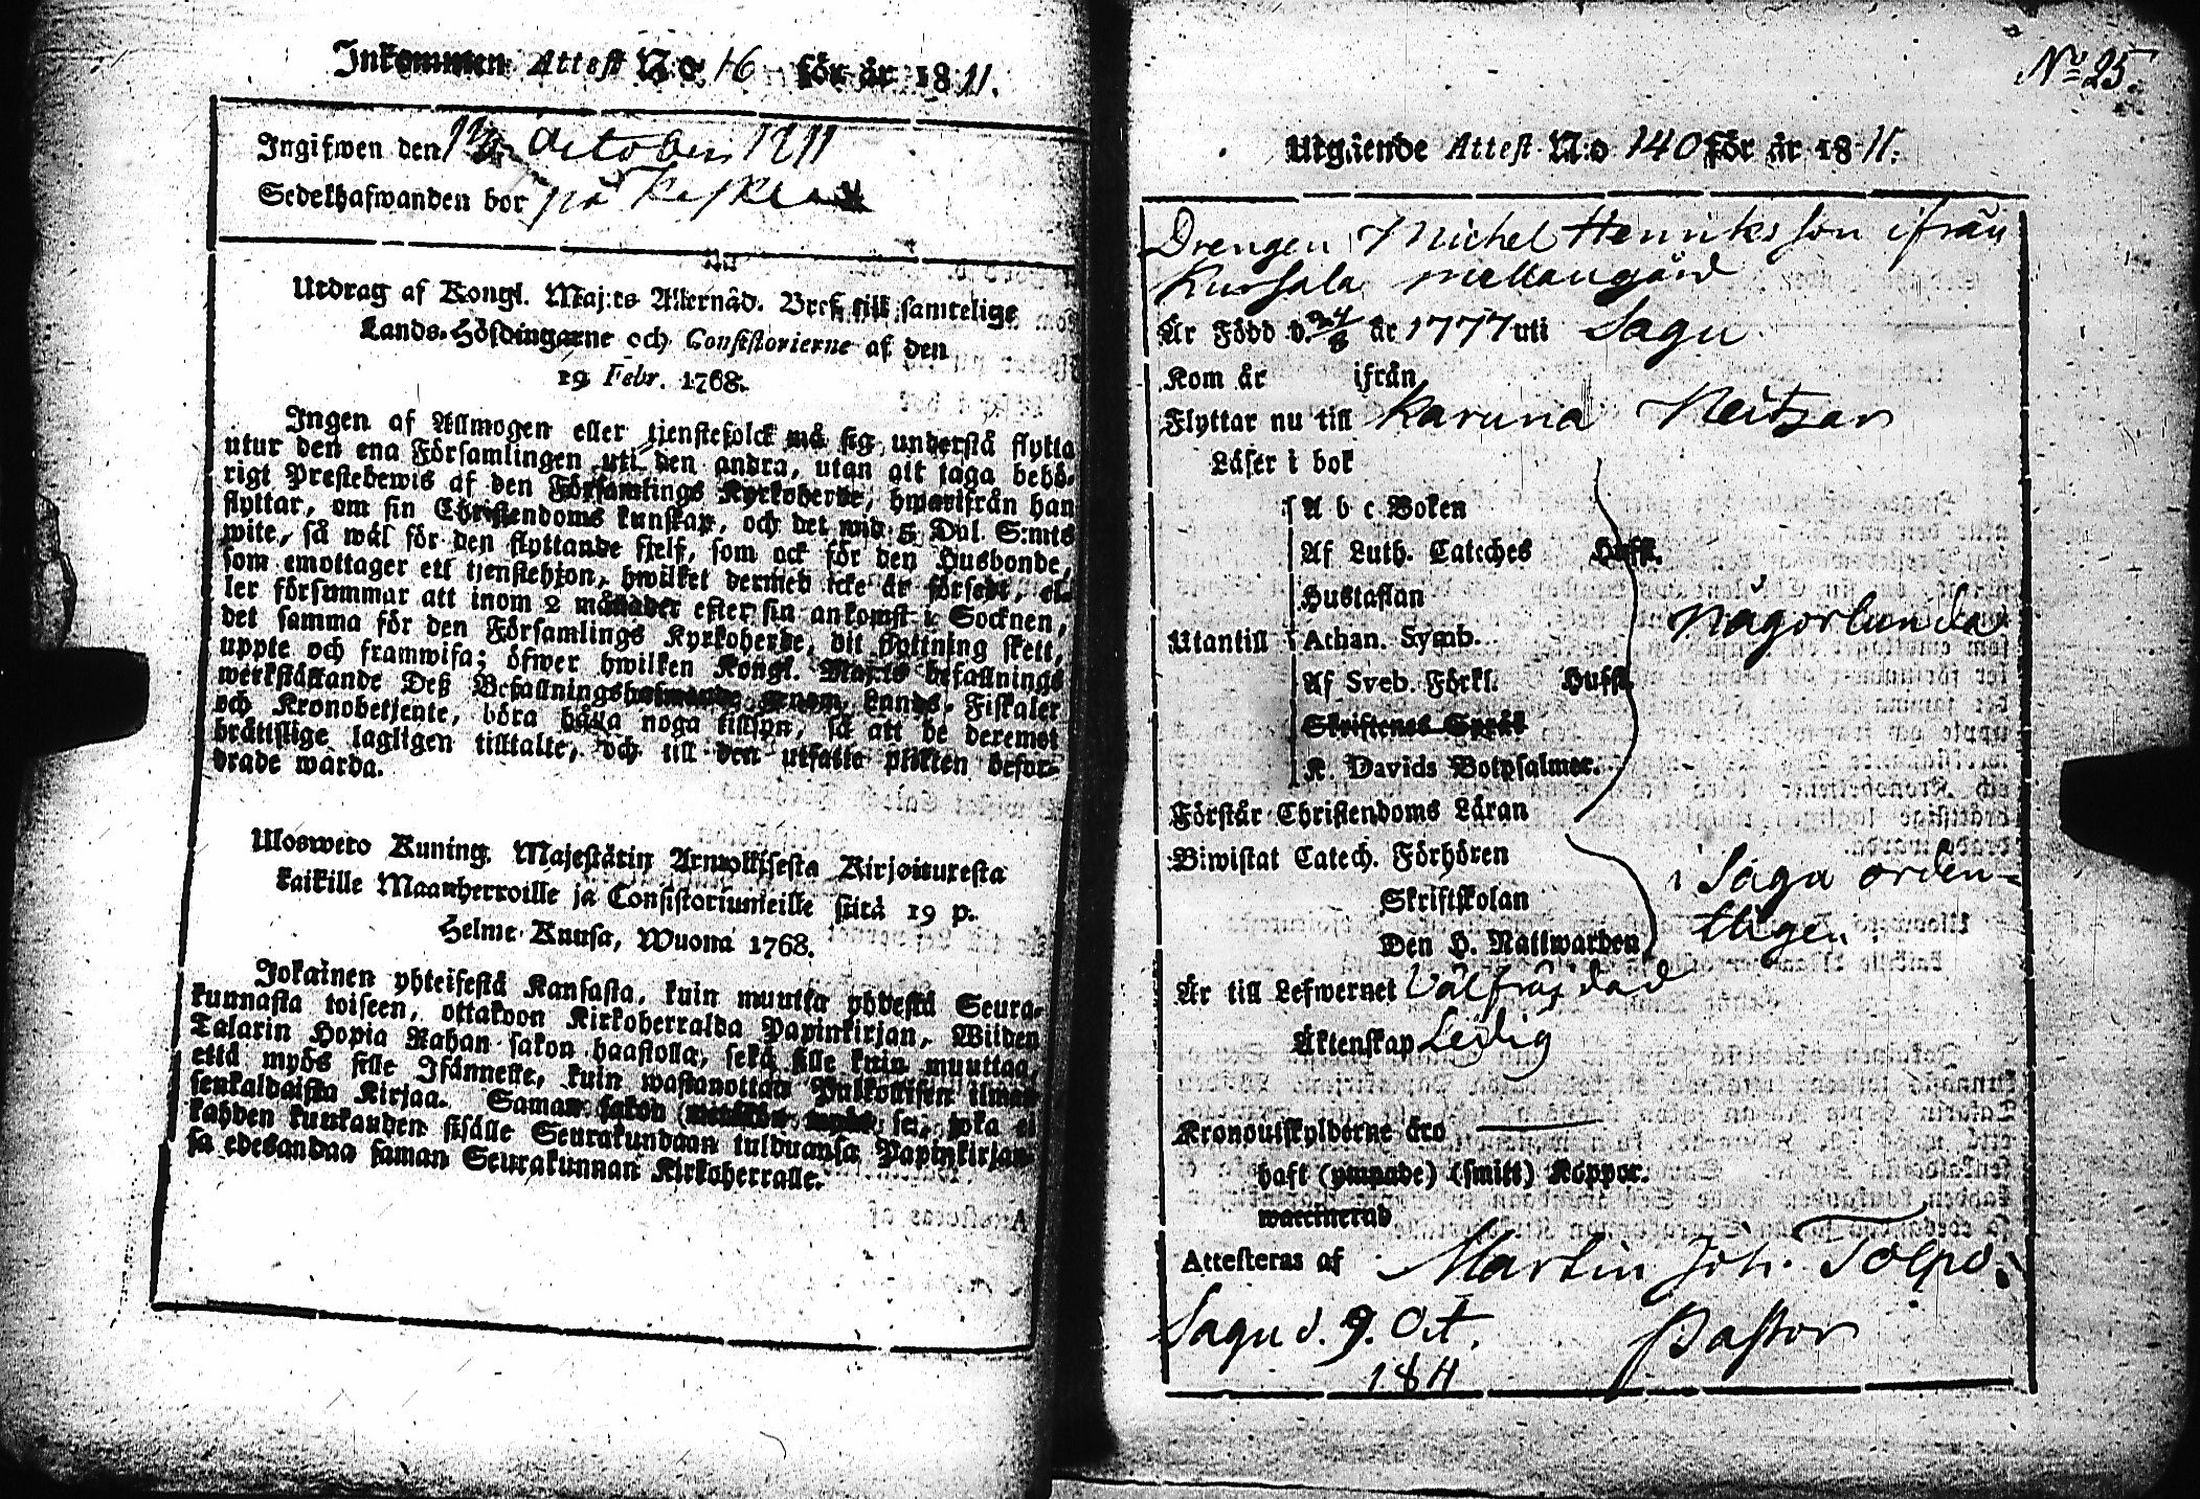 Inkommen Attest N:o 16 för år 1811.
Ingifwen den October 1811
Sedelhafwanden bor på
Utdrag af Kongl. Maj:ts Allernåd. Bref till samtelige
Lands-Höfdingarne och Consistorierne af den
19 Febr. 1768.
Ingen af Allmogen eller tjenstefolck må sig understå flytta
utur den ena Församlingen uti den andra, utan att taga behö-
rigt Prestebewis af den Församlings Kyrkoherde, hwarifrån han
flyttar, om sin Christendoms kunskap, och det wid 5 Dal. S:mts
wite, så wäl för den flyttande sjelf, som ock för den Husbonde,
som emottager ett tjenstehjon, hwilket dermed icke är försedt, el-
ler försummar att inom 2 månader efter sin ankomst i Socknen,
det samma för den Församlings Kyrkoherde, dit flyttning skett,
uppte och framwisa; öfwer hwilken Kongl. Maj:ts befallnings
werkställande Deß Befallningshafwande genom Lands-Fiskaler
och Kronobetjente, böra hålla noga tillsyn, så att de deremot
brättslige lagligen tilltalte, och till den utfatte plikten befor-
drade warda.
Ulosweto Kuning. Majestätin Armollisesta Kirjoituresta
kaikille Maanherroille ja Consistoriumeille siitä 19 p.
Helme-Kuusa, Wuona 1768.
Jokainen yhteisestä Kansasta, kuin muutta yhdestä Seura-
kunnasta toiseen, ottakoon Kirkoherralda Papinkirjan, Wiiden
Talarin Hopia Rahan sakon haastolla, sekä sille kuin muuttaa,
että myös sille Isännelle, kuin wastanottaa Palkollisen ilman
senkaldaista Kirjaa. Saman sakon se, joka ei
kahden kuukauden sisälle Seurakundaan tulduansa Papinkirjan-
sa edesandaa saman Seurakunnan Kirkoherralle.
No 25.
Utgående Attest N:o 140 för år 1811.
Drengen Michel Henriksson ifrån
Kursala mellangård
Är Född d. 24/8 år 1777 uti Sagu
Kom år ifrån
Flyttar nu till Karuna
Läser i bok
A b c Boken
Af Luth. Cateches Hufst.
Hustaflan
någorlunda
Utantill Athan. Symb.
Af Sveb. Förkl. Hufst.
Skriftenes Språk
K. Davids Botpsalmer.
Förstår Christendoms Läran
Biwistat Catech. Förhören
i Sagu orden-
Skriftskolan
tligen
Den H. Nattwarden
Är till Lefwernet Välfräjdad
Äktenskap Ledig
Kronoutskylderne äro
haft (ympade) (smitt) Koppor.
waccinerad
Attesteras af Martin Joh. Tolpo.
Sagu d. 9. Oct. Pastor
1811